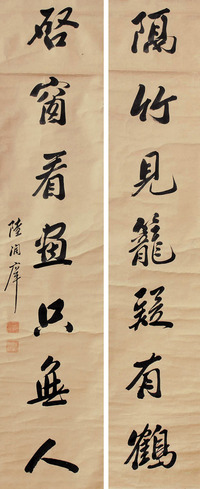 隔竹見籠疑有鶴
啓窗看畫只無人
陸潤庠